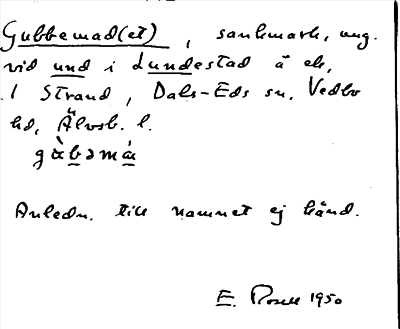 Gubbemad(et), sankmark, ung.
vid und i Lundestad å ek,
1 Strand, Dals-Eds sn. Vedbo
hd, Älvsb. l.
gàbəmá
Anledn. till namnet ej känd.
E. Rosell 1950